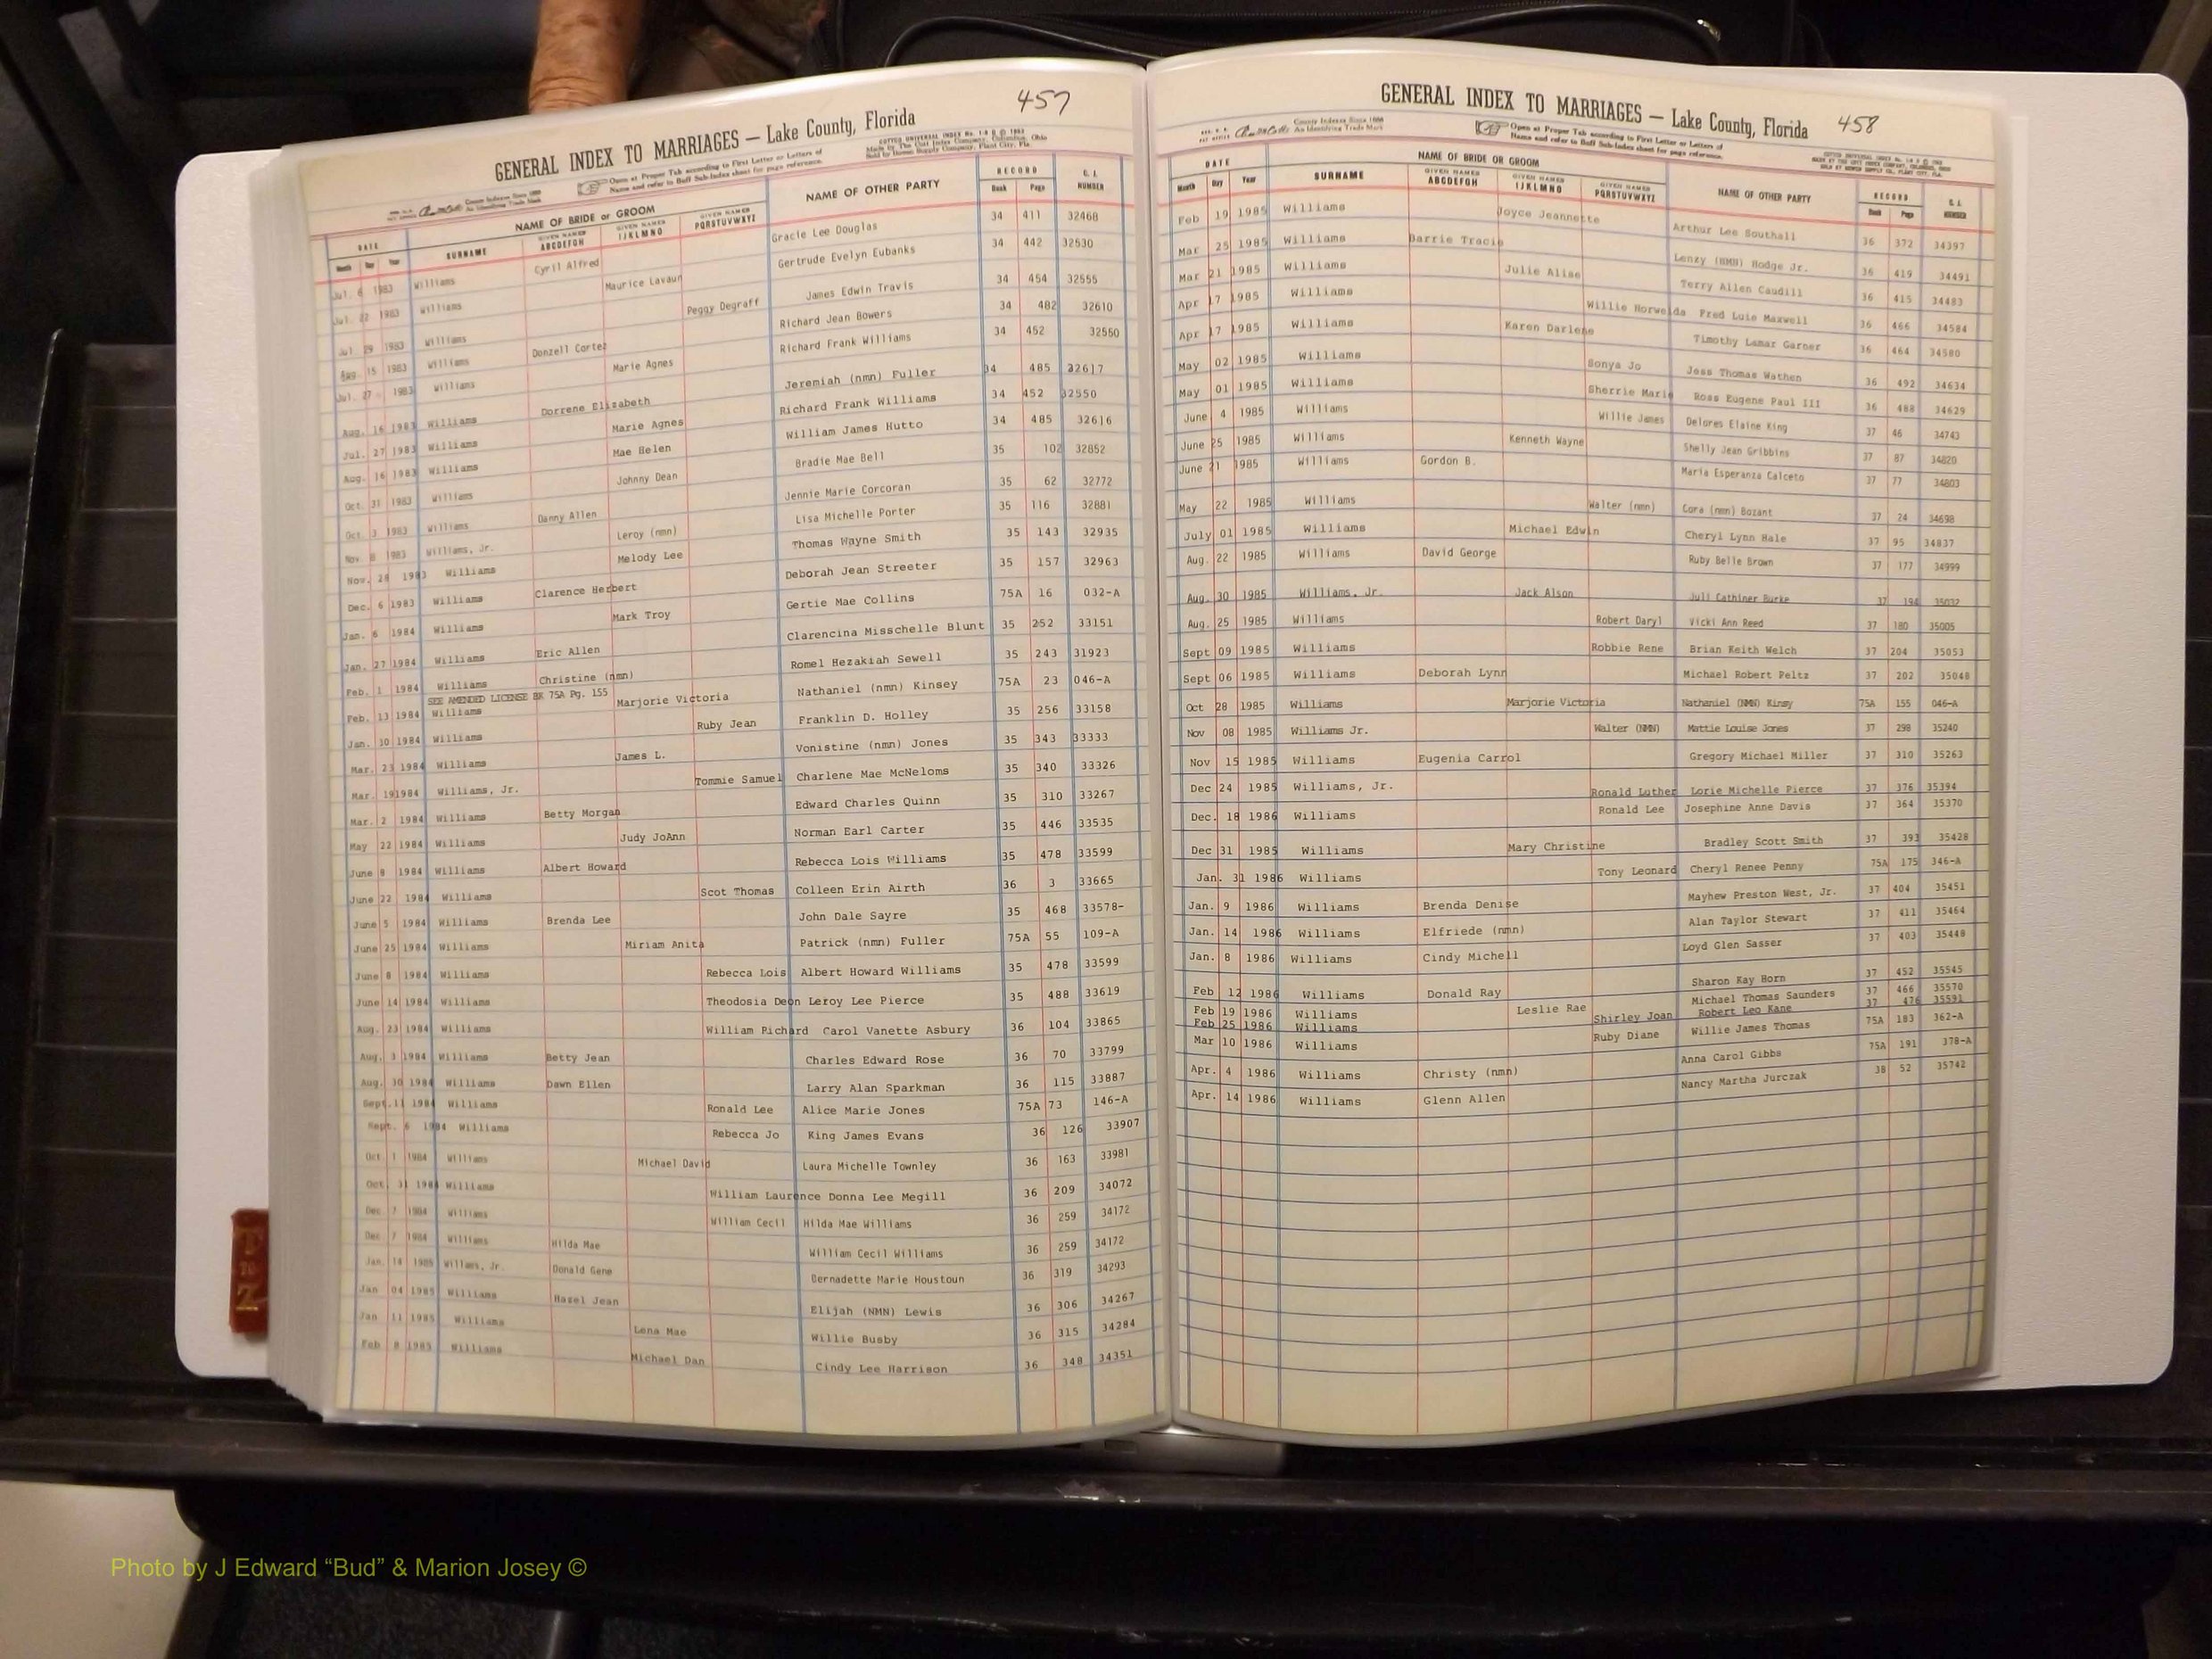 457
GENERAL INDEX TO MARRIAGES — Lake County, Florida
Open at Proper Tab according to First Letter or Letters of
Name and refer to Buff Sub-Index sheet for page reference.
DATE NAME OF BRIDE or GROOM NAME OF OTHER PARTY RECORD C. I. NUMBER
Month Day Year SURNAME GIVEN NAMES ABCDEFGH GIVEN NAMES IJKLMNO GIVEN NAMES PQRSTUVWXYZ Book Page
Jul. 6 1983 Williams Cyril Alfred Gracie Lee Douglas 34 411 32468
Jul. 22 1983 Williams Maurice Lavaun Gertrude Evelyn Eubanks 34 442 32530
Jul. 29 1983 Williams Peggy Degraff James Edwin Travis 34 454 32555
Aug. 15 1983 Williams Donzell Cortez Richard Jean Bowers 34 482 32610
Jul. 27 1983 Williams Marie Agnes Richard Frank Williams 34 452 32550
Aug. 16 1983 Williams Dorrene Elizabeth Jeremiah (nmn) Fuller 34 485 32617
Jul. 27 1983 Williams Marie Agnes Richard Frank Williams 34 452 32550
Aug. 16 1983 Williams Mae Helen William James Hutto 34 485 32616
Oct. 31 1983 Williams Johnny Dean Bradie Mae Bell 35 102 32852
Oct. 3 1983 Williams Danny Allen Jennie Marie Corcoran 35 62 32772
Nov. 8 1983 Williams, Jr. Leroy (nmn) Lisa Michelle Porter 35 116 32881
Nov. 28 1983 Williams Melody Lee Thomas Wayne Smith 35 143 32935
Dec. 6 1983 Williams Clarence Herbert Deborah Jean Streeter 35 157 32963
Jan. 6 1984 Williams Mark Troy Gertie Mae Collins 75A 16 032-A
Jan. 27 1984 Williams Eric Allen Clarencina Misschelle Blunt 35 252 33151
Feb. 1 1984 Williams Christine (nmn) Romel Hezakiah Sewell 35 243 31923
SEE AMENDED LICENSE BK 75A Pg. 155
Feb. 13 1984 Williams Marjorie Victoria Nathaniel (nmn) Kinsey 75A 23 046-A
Jan. 30 1984 Williams Ruby Jean Franklin D. Holley 35 256 33158
Mar. 23 1984 Williams James L. Vonistine (nmn) Jones 35 343 33333
Mar. 19 1984 Williams, Jr. Tommie Samuel Charlene Mae McNeloms 35 340 33326
Mar. 2 1984 Williams Betty Morgan Edward Charles Quinn 35 310 33267
May 22 1984 Williams Judy JoAnn Norman Earl Carter 35 446 33535
June 8 1984 Williams Albert Howard Rebecca Lois Williams 35 478 33599
June 22 1984 Williams Scot Thomas Colleen Erin Airth 36 3 33665
June 5 1984 Williams Brenda Lee John Dale Sayre 35 468 33578-
June 25 1984 Williams Miriam Anita Patrick (nmn) Fuller 75A 55 109-A
June 8 1984 Williams Rebecca Lois Albert Howard Williams 35 478 33599
June 14 1984 Williams Theodosia Deon Leroy Lee Pierce 35 488 33619
Aug. 23 1984 Williams William Richard Carol Vanette Asbury 36 104 33865
Aug. 3 1984 Williams Betty Jean Charles Edward Rose 36 70 33799
Aug. 30 1984 Williams Dawn Ellen Larry Alan Sparkman 36 115 33887
Sept. 11 1984 Williams Ronald Lee Alice Marie Jones 75A 73 146-A
Sept. 6 1984 Williams Rebecca Jo King James Evans 36 126 33907
Oct. 1 1984 Williams Michael David Laura Michelle Townley 36 163 33981
Oct. 31 1984 Williams William Laurence Donna Lee Megill 36 209 34072
Dec 7 1984 Williams William Cecil Hilda Mae Williams 36 259 34172
Dec 7 1984 Williams Hilda Mae William Cecil Williams 36 259 34172
Jan. 14 1985 Willams, Jr. Donald Gene Bernadette Marie Houstoun 36 319 34293
Jan 04 1985 Williams Hazel Jean Elijah (NMN) Lewis 36 306 34267
Jan 11 1985 Williams Lena Mae Willie Busby 36 315 34284
Feb 8 1985 Williams Michael Dan Cindy Lee Harrison 36 348 34351
458
GENERAL INDEX TO MARRIAGES — Lake County, Florida
Open at Proper Tab according to First Letter or Letters of
Name and refer to Buff Sub-Index sheet for page reference.
DATE NAME OF BRIDE OR GROOM NAME OF OTHER PARTY RECORD C. I. NUMBER
Month Day Year SURNAME GIVEN NAMES ABCDEFGH GIVEN NAMES IJKLMNO GIVEN NAMES PQRSTUVWXYZ Book Page
Feb 19 1985 Williams Joyce Jeannette Arthur Lee Southall 36 372 34397
Mar 25 1985 Williams Barrie Tracie Lenzy (NMN) Hodge Jr. 36 419 34491
Mar 21 1985 Williams Julie Alise Terry Allen Caudill 36 415 34483
Apr 17 1985 Williams Willie Horweida Fred Luie Maxwell 36 466 34584
Apr 17 1985 Williams Karen Darlene Timothy Lamar Garner 36 464 34580
May 02 1985 Williams Sonya Jo Jess Thomas Wathen 36 492 34634
May 01 1985 Williams Sherrie Marie Ross Eugene Paul III 36 488 34629
June 4 1985 Williams Willie James Delores Elaine King 37 46 34743
June 25 1985 Williams Kenneth Wayne Shelly Jean Gribbins 37 87 34820
June 21 1985 Williams Gordon B. Maria Esperanza Calceto 37 77 34803
May 22 1985 Williams Walter (nmn) Cora (nmn) Bozant 37 24 34698
July 01 1985 Williams Michael Edwin Cheryl Lynn Hale 37 95 34837
Aug. 22 1985 Williams David George Ruby Belle Brown 37 177 34999
Aug. 30 1985 Williams, Jr. Jack Alson Juli Cathiner Burke 37 194 35032
Aug. 25 1985 Williams Robert Daryl Vicki Ann Reed 37 180 35005
Sept 09 1985 Williams Robbie Rene Brian Keith Welch 37 204 35053
Sept 06 1985 Williams Deborah Lynn Michael Robert Peltz 37 202 35048
Oct 28 1985 Williams Marjorie Victoria Nathaniel (NMN) Kinsy 75A 155 046-A
Nov 08 1985 Williams Jr. Walter (NMN) Mattie Louise Jones 37 298 35240
Nov 15 1985 Williams Eugenia Carrol Gregory Michael Miller 37 310 35263
Dec 24 1985 Williams, Jr. Ronald Luther Lorie Michelle Pierce 37 376 35394
Dec. 18 1986 Williams Ronald Lee Josephine Anne Davis 37 364 35370
Dec 31 1985 Williams Mary Christine Bradley Scott Smith 37 393 35428
Jan. 31 1986 Williams Tony Leonard Cheryl Renee Penny 75A 175 346-A
Jan. 9 1986 Williams Brenda Denise Mayhew Preston West, Jr. 37 404 35451
Jan. 14 1986 Williams Elfriede (nmn) Alan Taylor Stewart 37 411 35464
Jan. 8 1986 Williams Cindy Michell Loyd Glen Sasser 37 403 35448
Feb 12 1986 Williams Donald Ray Sharon Kay Horn 37 452 35545
Feb 19 1986 Williams Leslie Rae Michael Thomas Saunders 37 466 35570
Feb 25 1986 Williams Shirley Joan Robert Leo Kane 37 476 35591
Mar 10 1986 Williams Ruby Diane Willie James Thomas 75A 183 362-A
Apr. 4 1986 Williams Christy (nmn) Anna Carol Gibbs 75A 191 378-A
Apr. 14 1986 Williams Glenn Allen Nancy Martha Jurczak 38 52 35742
T
TO
Z
Photo by J Edward “Bud” & Marion Josey ©